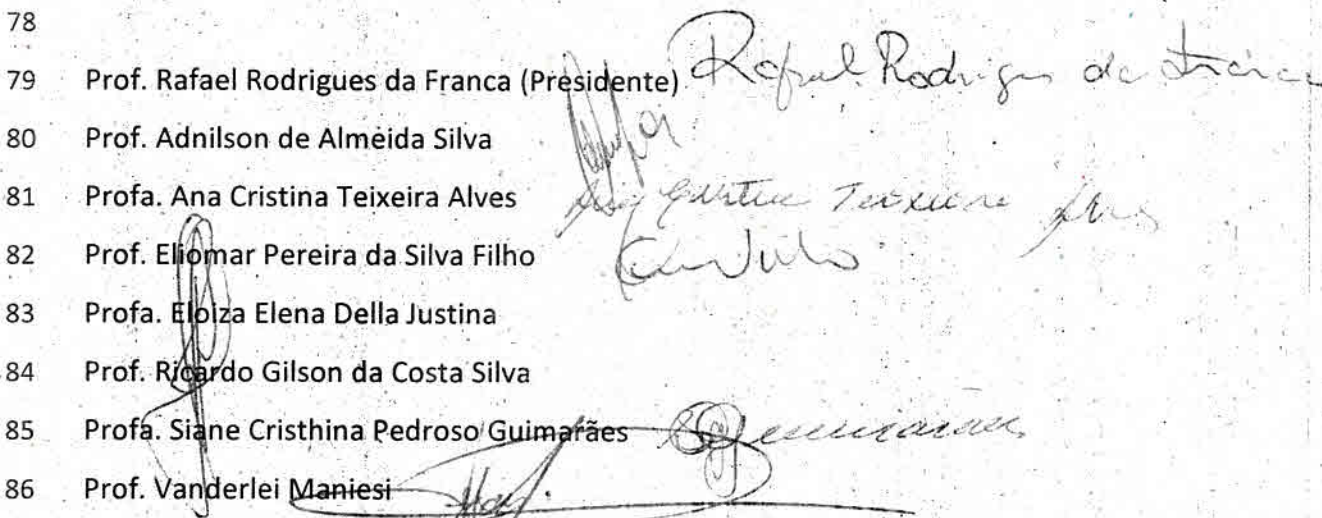 78
79 Prof. Rafael Rodrigues da Franca (Presidente) Rafael Rodrigues da Franca
80 Prof. Adnilson de Almeida Silva
81 Profa. Ana Cristina Teixeira Alves Ana Cristina Teixeira Alves
82 Prof. Eliomar Pereira da Silva Filho
83 Profa. Eloiza Elena Della Justina
84 Prof. Ricardo Gilson da Costa Silva
85 Profa. Siane Cristhina Pedroso Guimarães
86 Prof. Vanderlei Maniesi